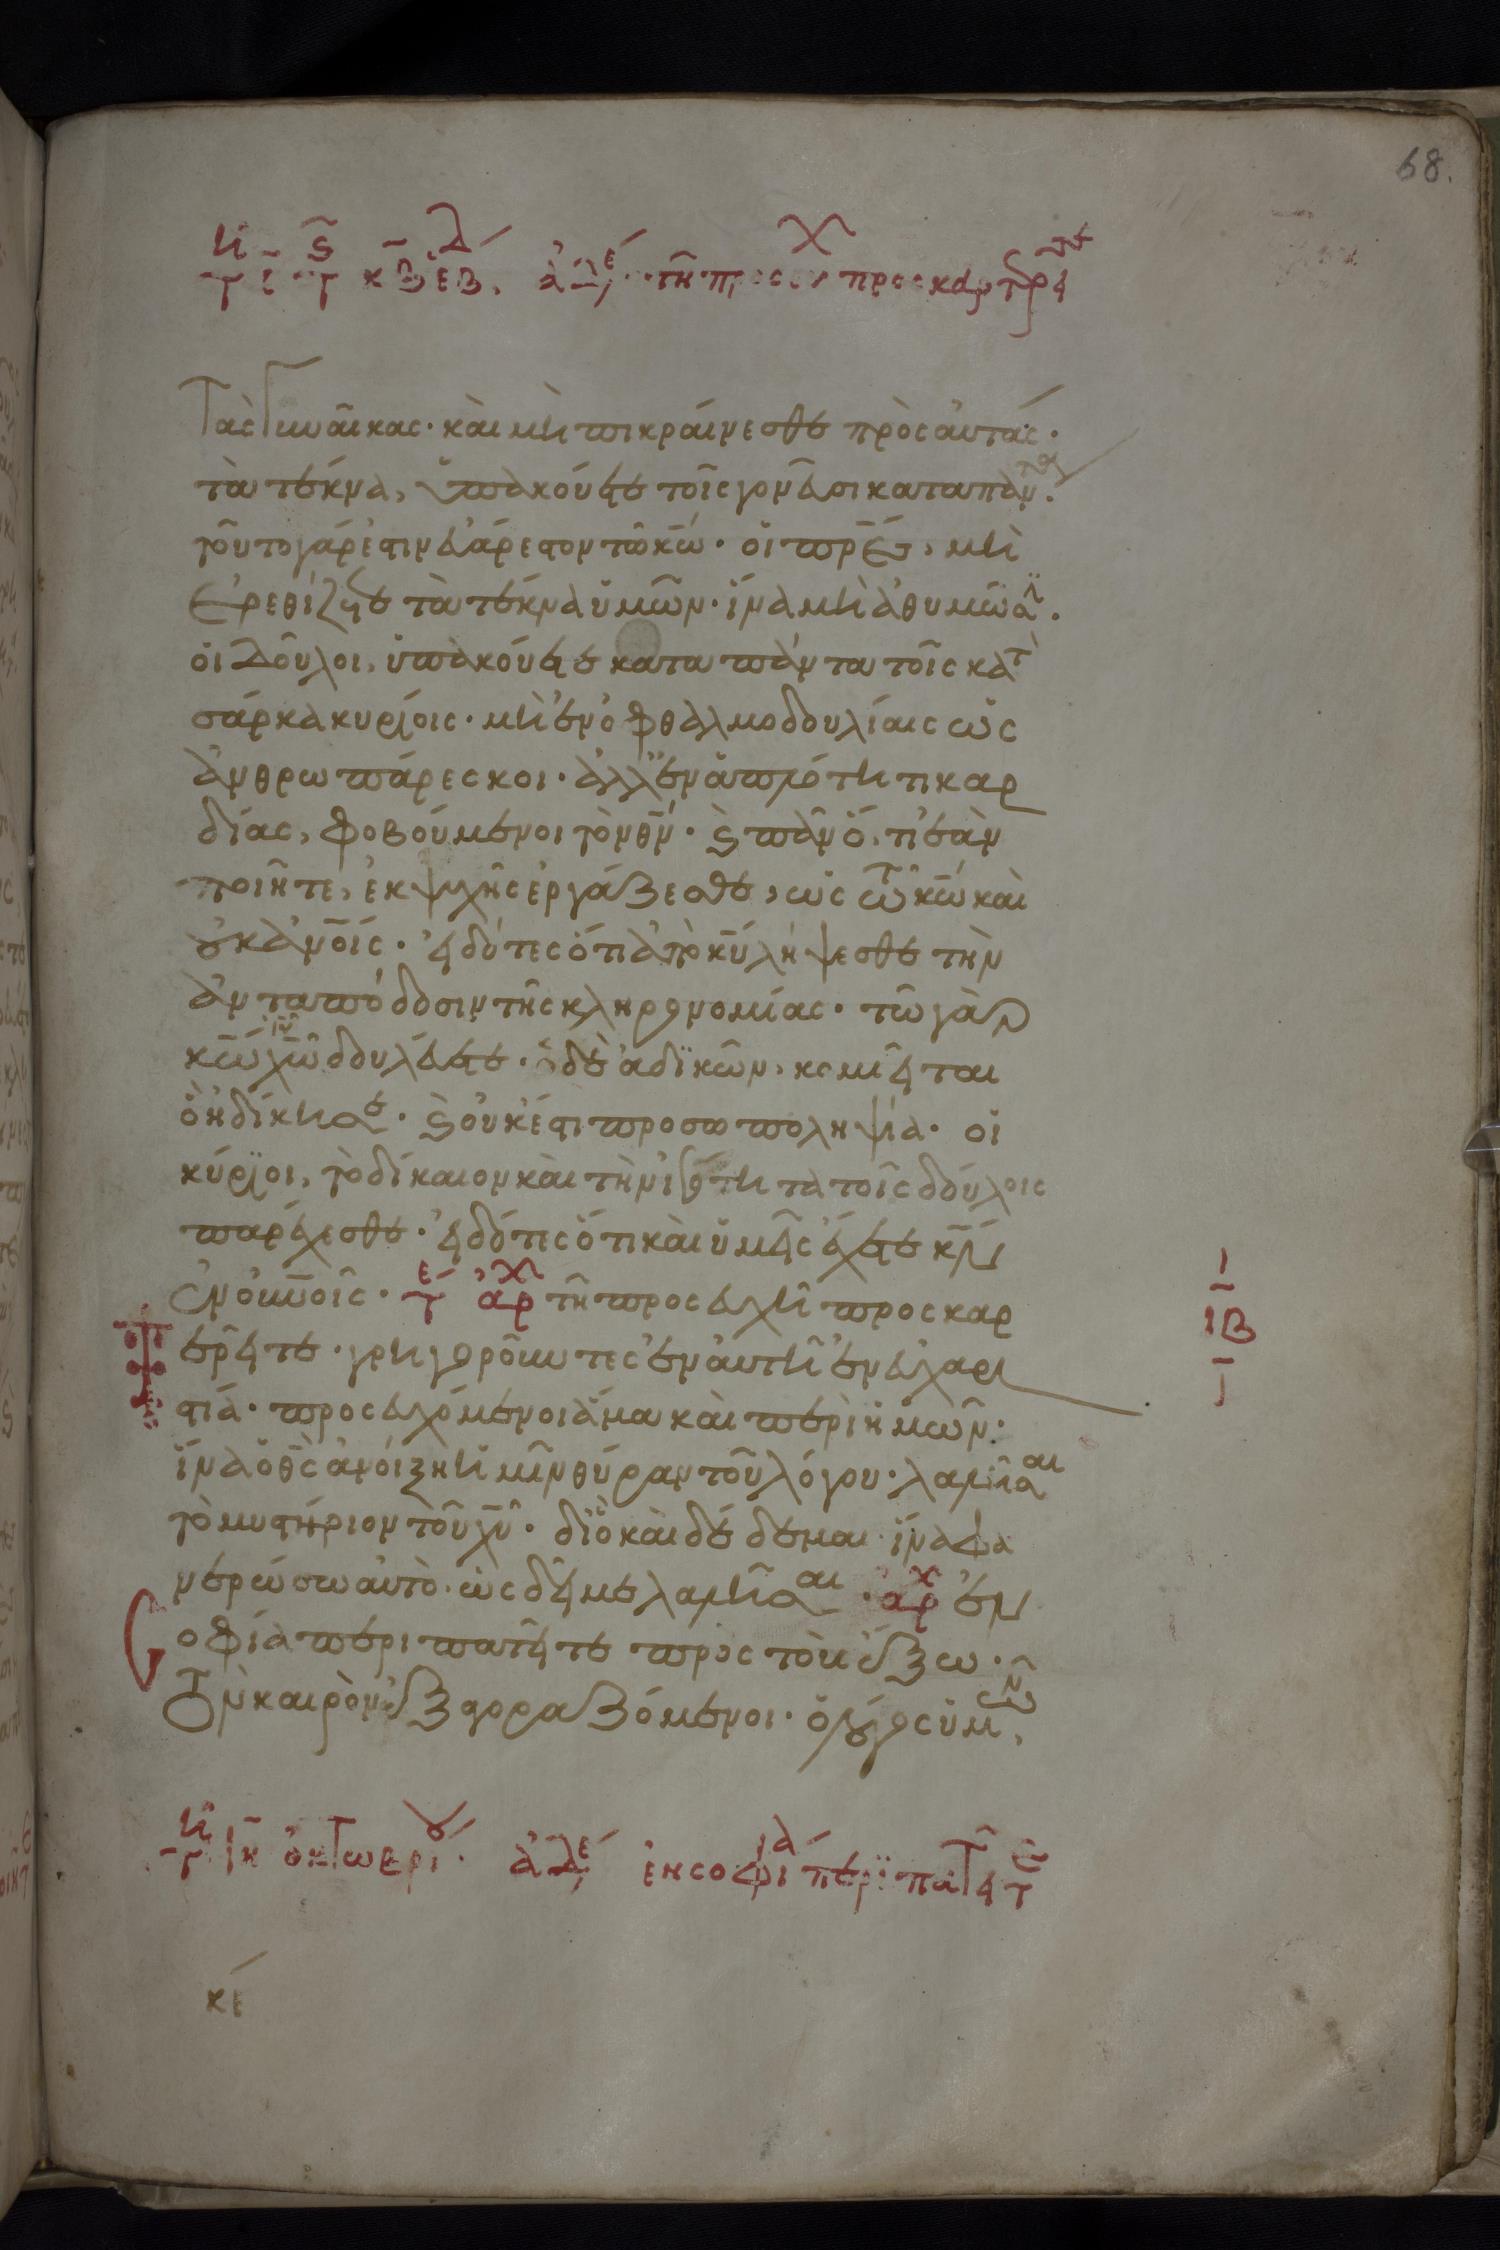 68.
τὰς γυναῖκας· καὶ μὴ πικραίνεσθε πρὸς αὐτάς·
τὰ τέκνα, ὑπακούετε τοῖς γονεῦσι κατα πάντα·
τοῦτο γάρ ἐστιν εὐάρεστον τῶ κ̅ω̅· οἱ π̅ρ̅ε̅ς̅, μὴ
ἐρεθίζετε τὰ τέκνα ὑμῶν· ἵνα μὴ ἀθυμῶσι·
οἱ δοῦλοι, ὑπακούετε κατα πάντα τοῖς κατὰ
σάρκα κυρίοις· μὴ ἐν ὀφθαλμοδουλίαις ὡς
ἀνθρωπάρεσκοι· ἀλλ' ἐν ἁπλότητι καρ
δίας, φοβούμενοι τὸν θ̅ν̅· καὶ πᾶν ὅ,τι ἐὰν
ποιῆτε, ἐκ ψυχῆς ἐργάζεσθε, ὡς τῶ κ̅ω̅ καὶ
οὐκ ἀ̅ν̅ο̅ι̅ς̅· εἰδότες ὅτι ἀπὸ κ̅υ̅ λήψεσθε τὴν
ἀνταπόδοσιν τῆς κληρονομίας· τῶ γὰρ
κ̅ω̅ χ̅ω̅ δουλεύετε· ὁ δὲ ἀδικῶν, κομιεῖται
ὃ ἠδίκησε· καὶ οὐκ ἔστι προσωποληψία· οἱ
κύριοι, τὸ δίκαιον καὶ τὴν ἰσότητα τοῖς δούλοις
παρέχεσθε· εἰδότες ὅτι καὶ ὑμεῖς ἔχετε κ̅ν̅
ἐν ο̅υ̅ν̅ο̅ι̅ς̅· τε ἀρχ τῆ προσευχῆ προσκαρ
τερεῖτε· γρηγοροῦντες ἐν αὐτῆ ἐν εὐχαρι
ιβ
στία· προσευχόμενοι ἅμα καὶ περὶ ἡμῶν·
ἵνα ὁ θ̅ς̅ ἀνοίξη ἡμῖν θύραν τοῦ λόγου· λαλῆσαι
τὸ μυστήριον τοῦ χ̅υ̅· διὸ καὶ δέδεμαι ἵνα φα
νερώσω αὐτὸ· ὡς δεῖ με λαλῆσαι· ἀρχ ἐν
σοφία περιπατεῖτε πρὸς τοὺς ἔξω·
τὸν καιρὸν ἐξαγοραζόμενοι· ὁ λόγος ὑμῶν,
ἐν σοφία περιπατεῖτε
κε